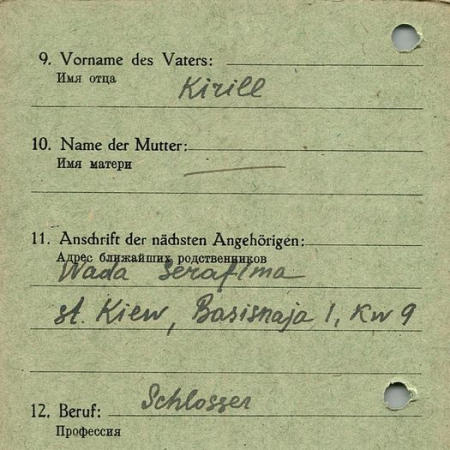 9. Vorname des Vaters:
Имя отца
Kirill
10. Name der Mutter:
Имя матери
11. Anschrift der nächsten Angehörigen:
Адрес ближайших родственников
Wada Serafima
st. Kiew, Basisnaja 1, Kw 9
12. Beruf: Schlosser
Профессия